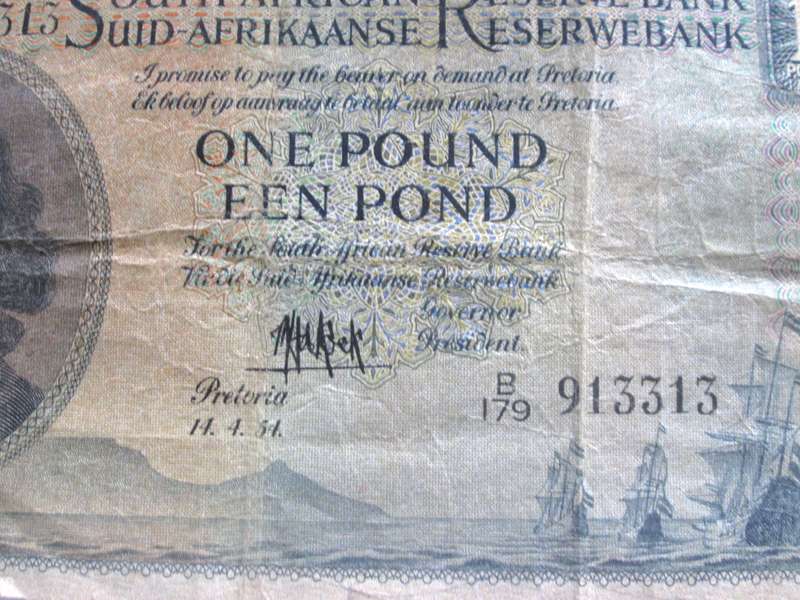 313 SOUTH AFRICAN RESERVE BANK
SUID-AFRIKAANSE RESERWEBANK
I promise to pay the bearer on demand at Pretoria.
Ek beloof op aanvraag te betaal aan toonder te Pretoria.
ONE POUND
EEN POND
For the South African Reserve Bank
Vir die Suid-Afrikaanse Reserwebank
Governor
President.
Pretoria
14. 4. 51.
B
179 913313